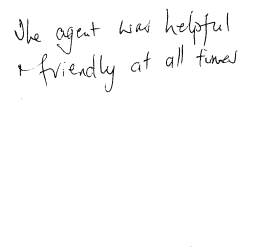 The agent was helpful
+ friendly at all times